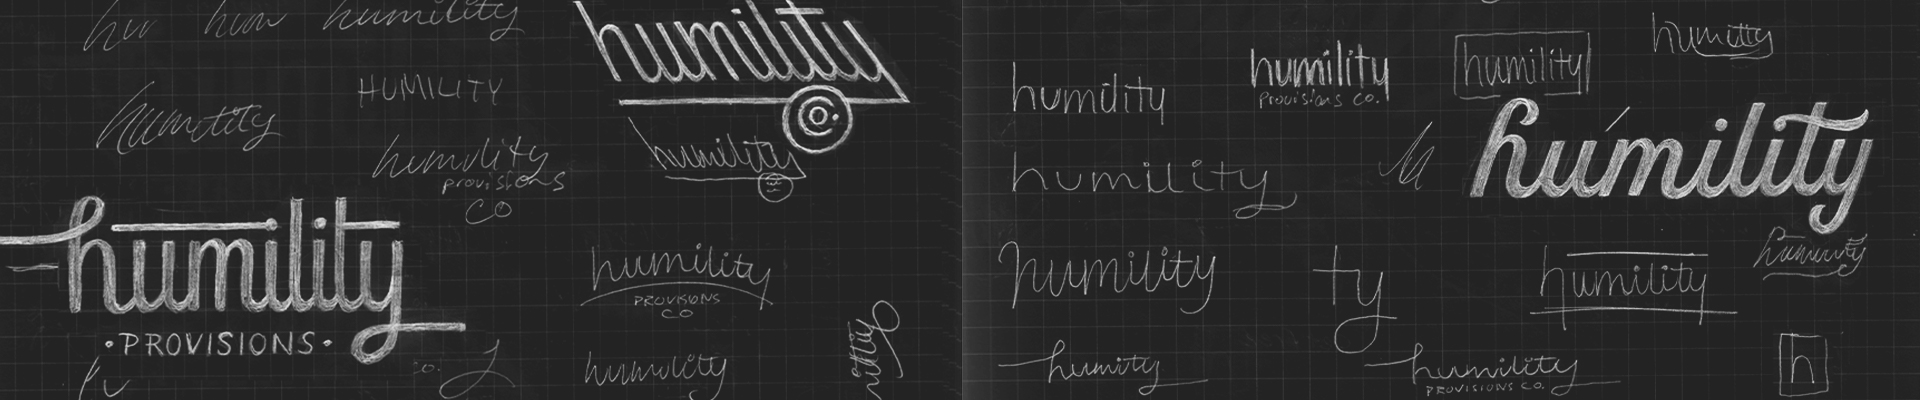 hu
hum
humility
humility
HUMILITY
humility
provisions
CO
humility
humility
humility
• PROVISIONS •
co.
humility
PROVISIONS
CO
humility
humility
humility
Provisions Co.
humility
humility
humility
humility
humility
humility
ty
humility
humility
humility
humility
PROVISIONS CO.
h